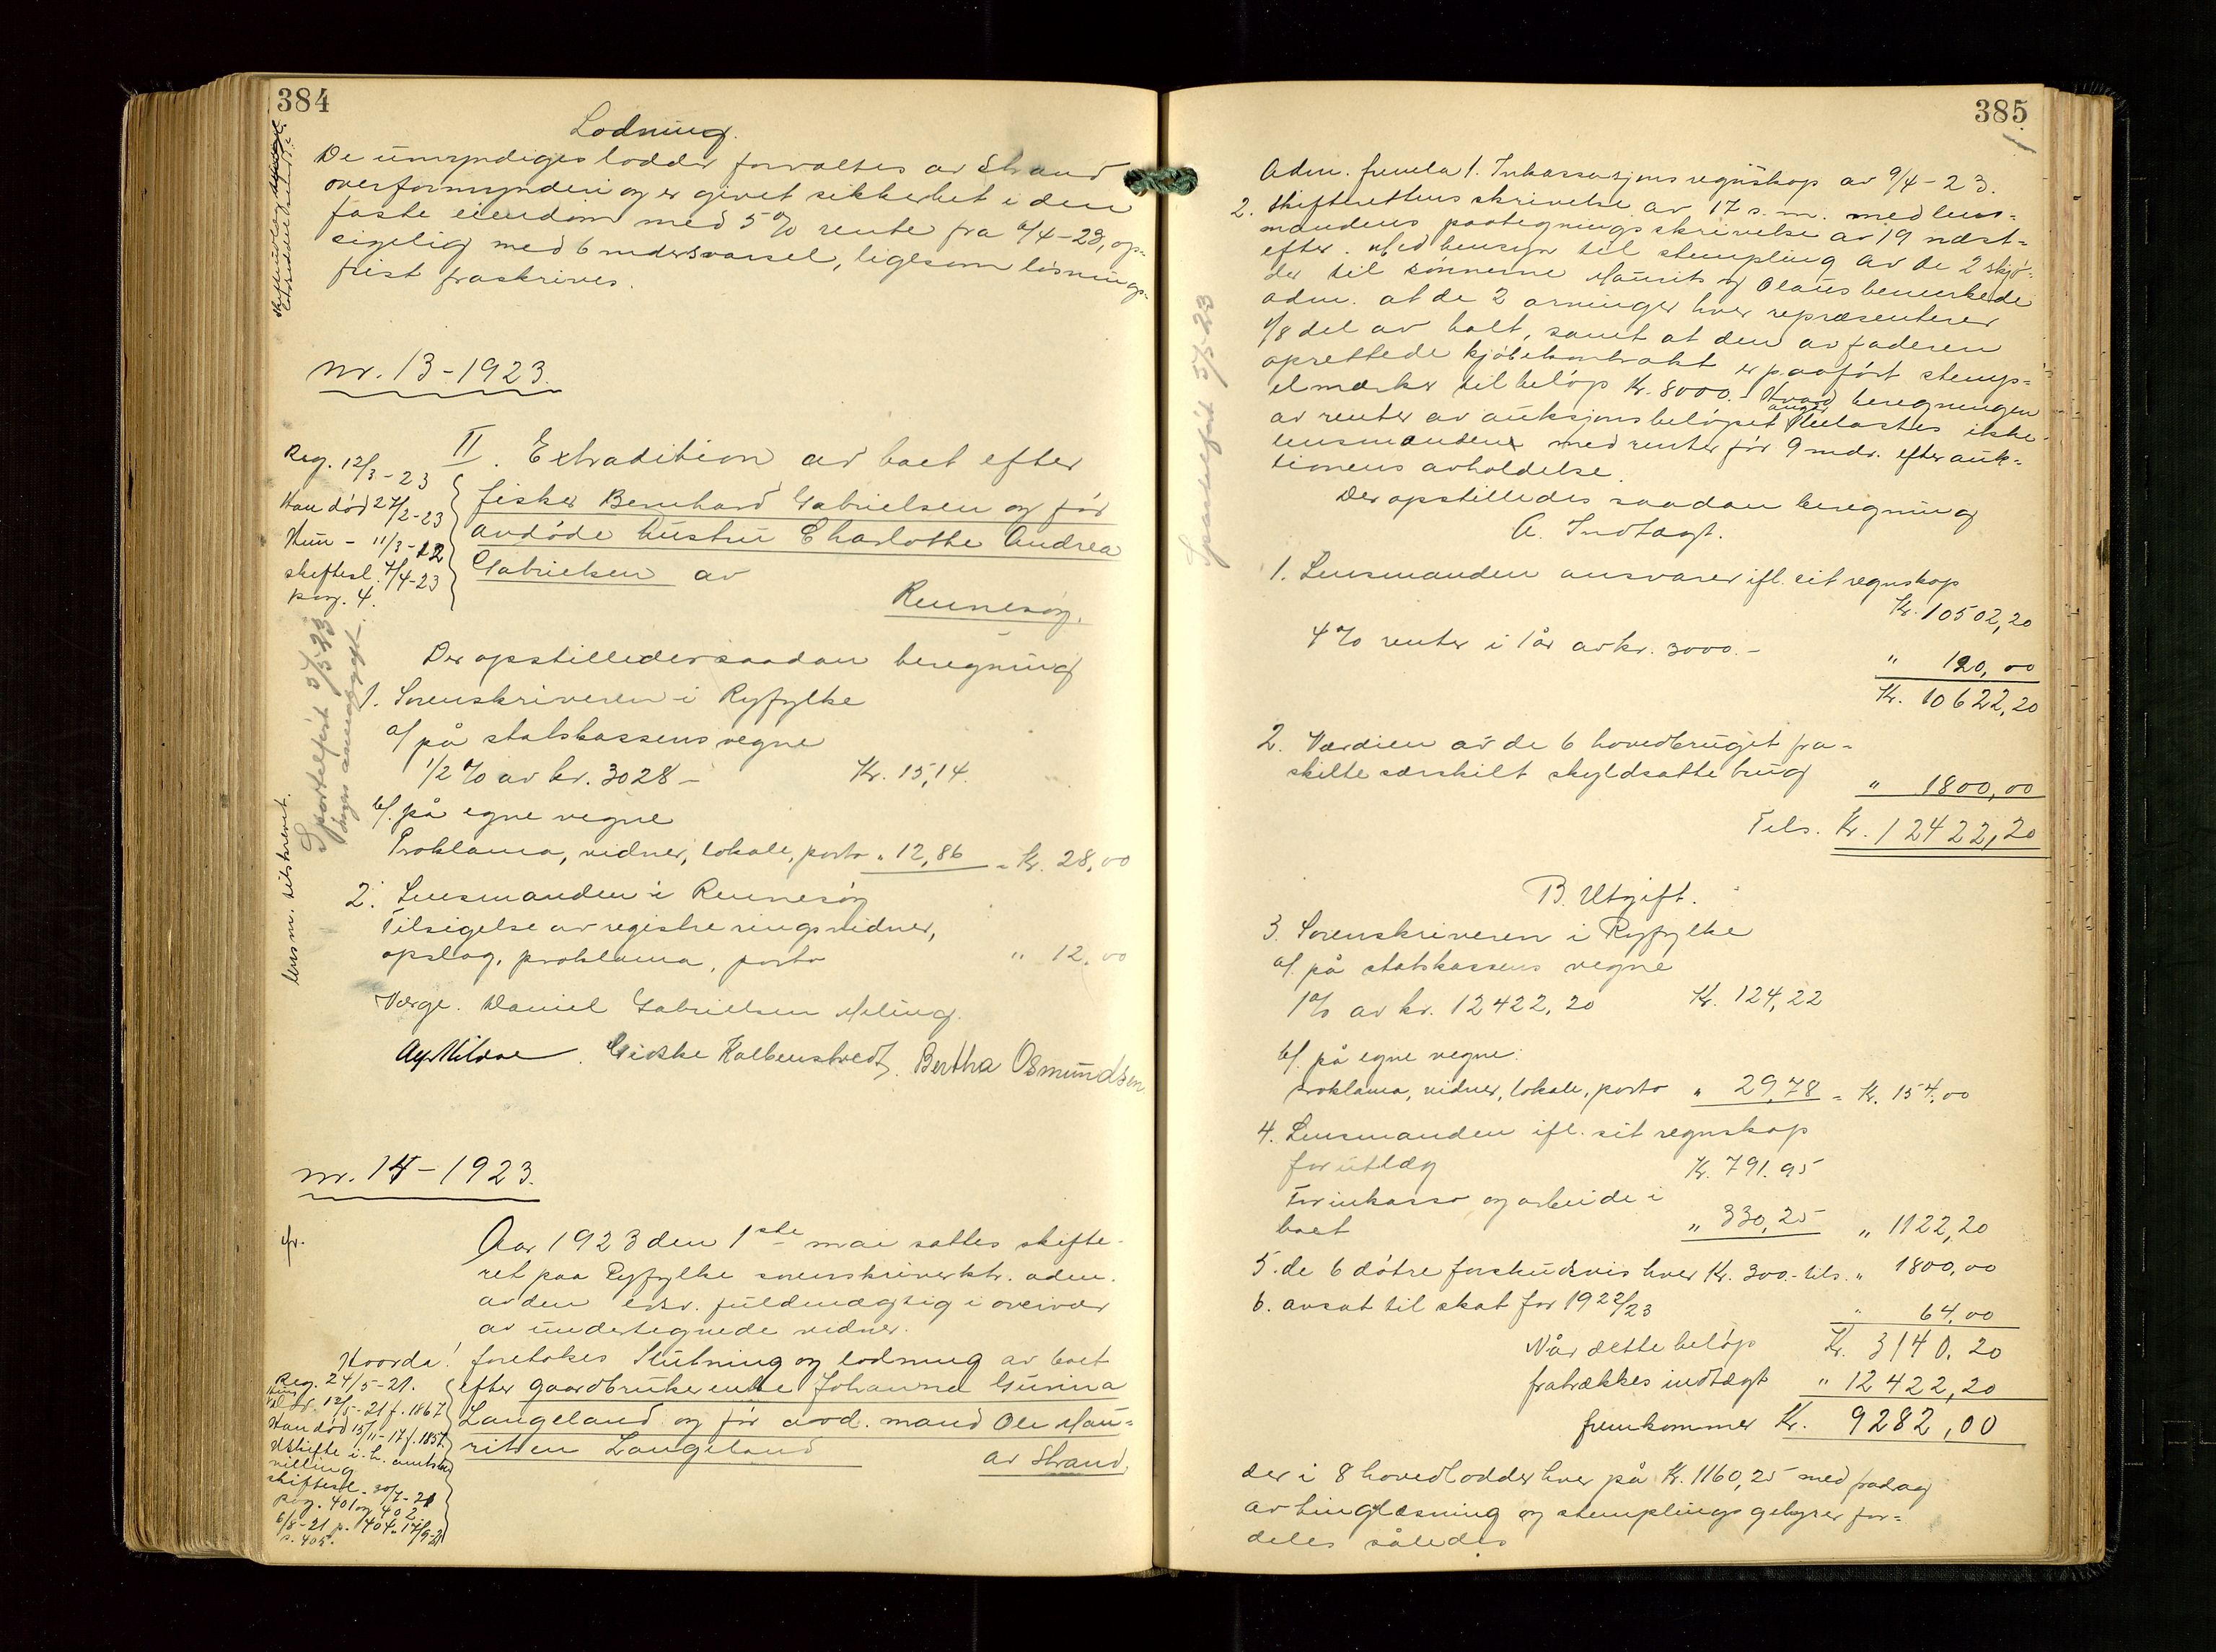 384
Lodning.
De umyndiges lodder forvaltes av Strand
overformynderi og er givet sikkerhet i den
faste eiendom med 5 % rente fra 9/4-23, op-
sigelig med 6 mdrs varsel, likesom løsnings-
frist fraskrives.
nr. 13-1923.
Reg. 12/3-23
Han død 27/2-23
Hun - 11/3-12
skiftesl. 7/4-23
pag. 4.
II. Extradition av boet efter
fisker Bernhard Gabrielsen og før
avdøde hustru Charlotte Andrea
Gabrielsen av
Rennesøy.
Sportelført 5/5-23
Der opstilledes saadan beregning
1. Sorenskriveren i Ryfylke
a/ på statskassens vegne
1/2 % av kr. 3028 - Kr. 15,14.
b/. på egne vegne
Proklama, vidner, lokale, porto " 12,86 = Kr. 28,00
lensm. tilskrevet.
2. Lensmanden i Rennesøy
Tilsigelse av registreringsvidner,
opslag, proklama, porto " 12,00
Verge. Daniel Gabrielsen Meling.
Giske Kolbenstvedt. Bertha Osmundsen
nr. 14-1923.
Aar 1923 den 1ste mai sattes skifte-
ret paa Ryfylke sorenskriverktr. adm.
av den edsv. fuldmægtig i overvær
av undertegnede vidner.
Hvorda! foretokes Slutning og lodning av boet
efter gaardbrukerenke Johanne Gurina
Langeland og før avd. mand Ole Mau=
ritsen Langeland
av Strand.
Reg. 24/5-21.
Hun død 12/5-21 f. 1867
Han død 15/11-17 f. 1857
Uskifte i. h. amtsbe
villing
skiftesl. 20/7-21
pag. 401 og 402
6/8-21 p. 404. 17/9-21
p. 405.
385
Adm. fremla 1. Inkassasjons regnskap av 9/4-23.
2. Skifterettens skrivelse av 17 s. m. med lens=
mandens paategningsskrivelse av 19 næst=
efter. Med hensyn til stempling av de 2 skjø=
der til sønnerne Maurits og Olaus bemerkede
adm. at de 2 arvinger hver repræsenterer
1/8 del av boet, samt at den av faderen
oprettede kjøbekontrakt er paaført stemp=
elmerker til beløp Kr. 8000.- Hvad beregningen
av renter av auksjonsbeløpet angår belastes ikke
lensmanden med renter før 9 mdr. efter auk=
tionens avholdelse.
Sportelført 5/5-23
Der opstilledes saadan beregning
A. Indtægt.
1. Lensmanden ansvarer ifl. sit regnskap
Kr. 10502,20
4 % renter i 1 år av kr. 3000.-
" 120,00
Kr. 10622,20
2. Værdien av de 6 hovedbruget fra-
skilte særskilt skyldsatte brug
" 1800,00
Tils. Kr. 12422,20
B. Utgift.
3. Sorenskriveren i Ryfylke
a/. på statskassens vegne
1 % av kr. 12422,20 Kr. 124,22
b/. på egne vegne:
proklama, vidner, lokale, porto " 29,78 = Kr. 154,00
4. Lensmanden ifl. sit regnskap
for utlæg Kr. 791.95
For inkasso og arbeide i
boet " 330,25 " 1122,20
5. de 6 døtre forskudsvis hver Kr. 300.- tils. " 1800,00
6. avsat til skat for 1922/23 " 64,00
Når dette beløp Kr. 3140,20
fratrækkes indtægt " 12422,20
fremkommer Kr. 9282,00
der i 8 hovedlodder hver på Kr. 1160,25 med fradrag
av tinglæsning og stemplingsgebyrer for=
deles således